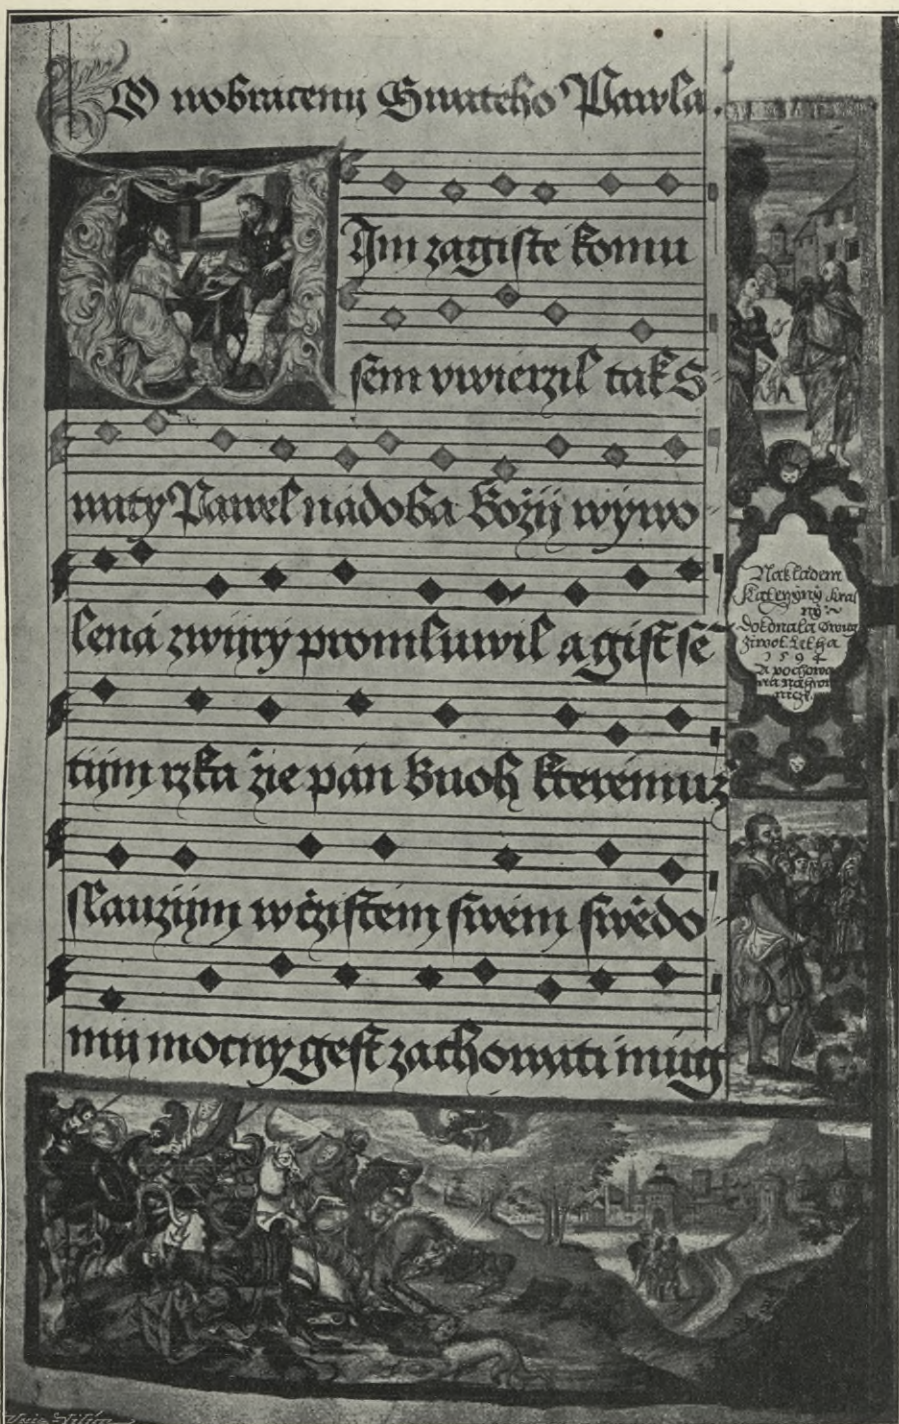 O wobraceny Swateho Pawla.
Jm zagiste komu
sem vwierzil tak S
waty Pawel nádoba Božij wywo
lená zwijry promluwil a gist sē
tijm rzka žie pán Buoh kterémuž
slaužijm w čzistém swém swědo
mij mocny gest zachowati múg
Nakladem
Kateryny Kral
ny
dokonala Swug
Ziwot Letha
1594
A pochowa
na